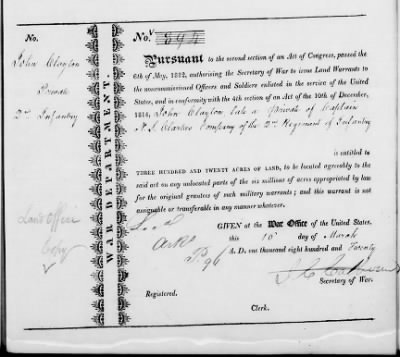 No.
John Clayton
Private
2nd Infantry
Land Office
Copy
WAR DEPARTMENT.
No. 894
Pursuant to the second section of an Act of Congress, passed the
6th of May, 1812, authorising the Secretary of War to issue Land Warrants to
the noncommissioned Officers and Soldiers enlisted in the service of the United
States, and in conformity with the 4th section of an Act of the 10th of December,
1814, John Clayton late a Private of Captain
Company of the 2nd Regiment of Infantry
is entitled to
THREE HUNDRED AND TWENTY ACRES OF LAND, to be located agreeably to the
said act on any unlocated parts of the six millions of acres appropriated by law
for the original grantees of such military warrants; and this warrant is not
assignable or transferable in any manner whatever.
GIVEN at the War Office of the United States,
this 10 day of March
A. D. one thousand eight hundred and Twenty
Arks
P 96
J C Calhoun
Secretary of War.
Registered.
Clerk.